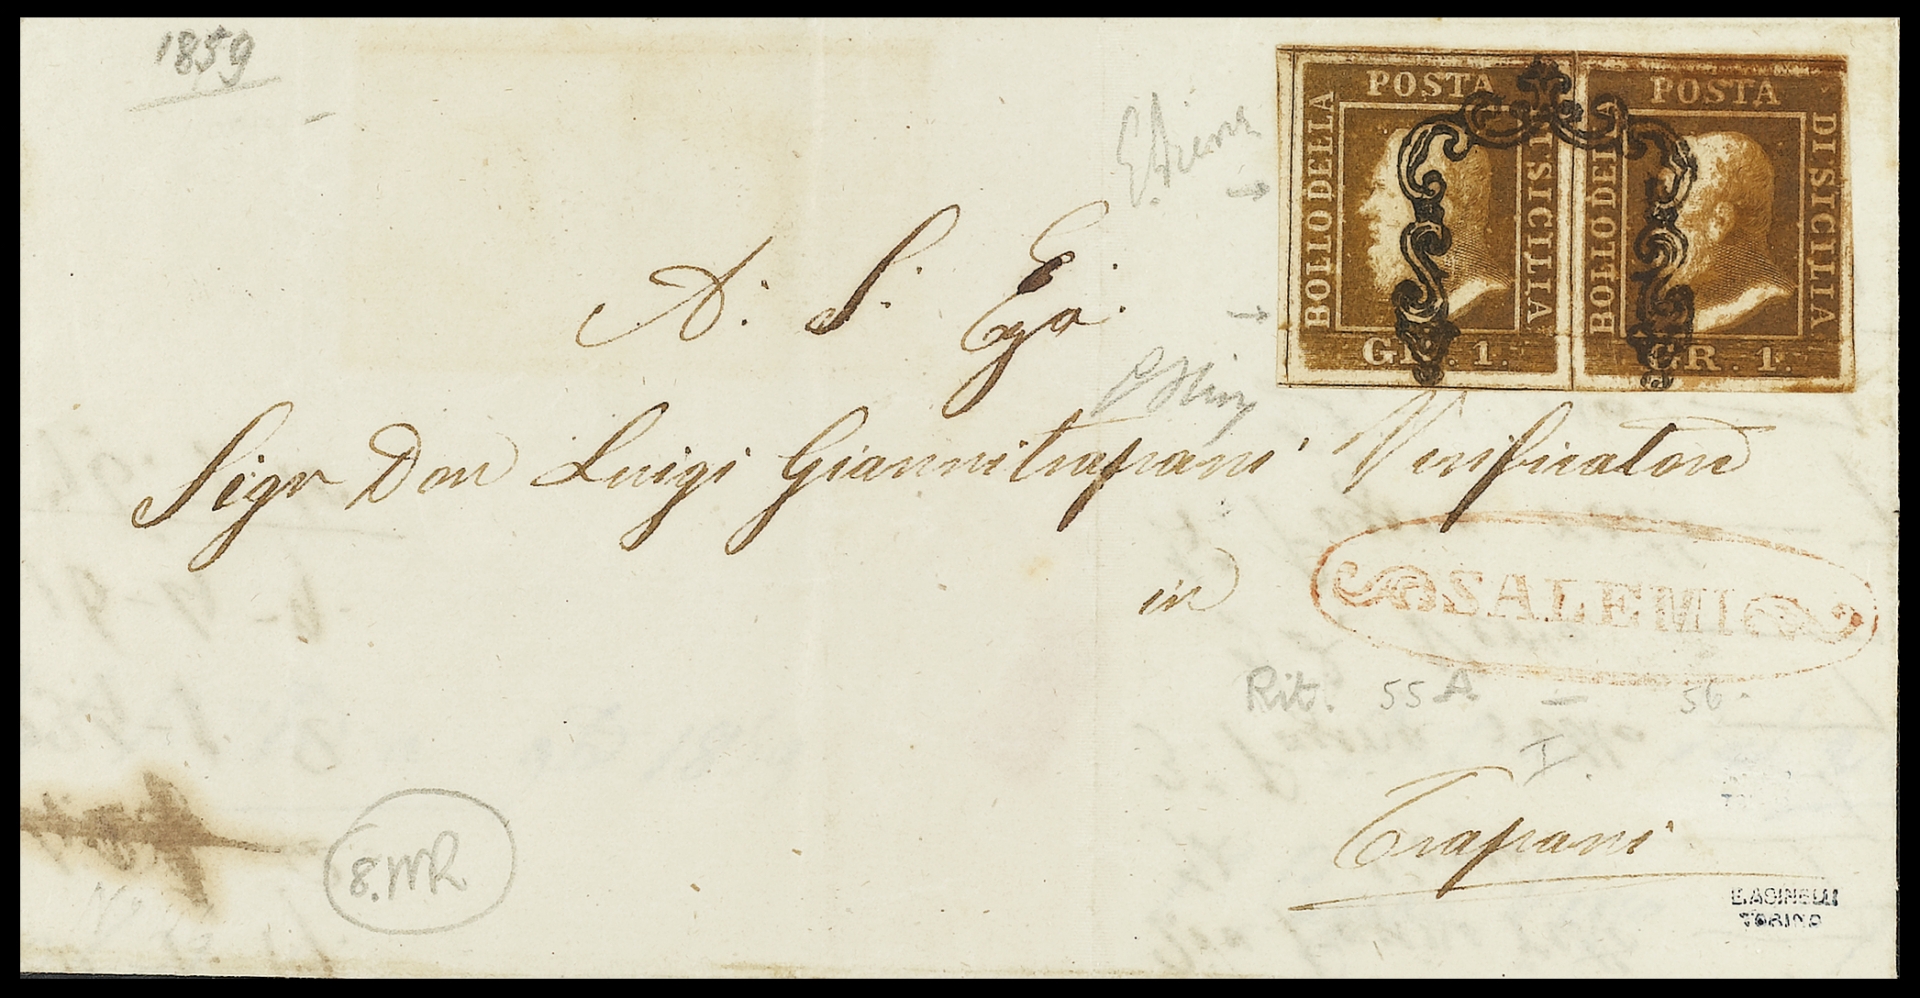 1859
POSTA
BOLLO DELLA
DI SICILIA
GR. 1.
POSTA
BOLLO DELLA
DI SICILIA
GR. 1.
A. S. E.
Sigr Don Luigi Giannitrapani Verificatore
in
SALEMI
Rit. 55A - 56.
I
Trapani
8.MR
E.ASINELLI
TORINO